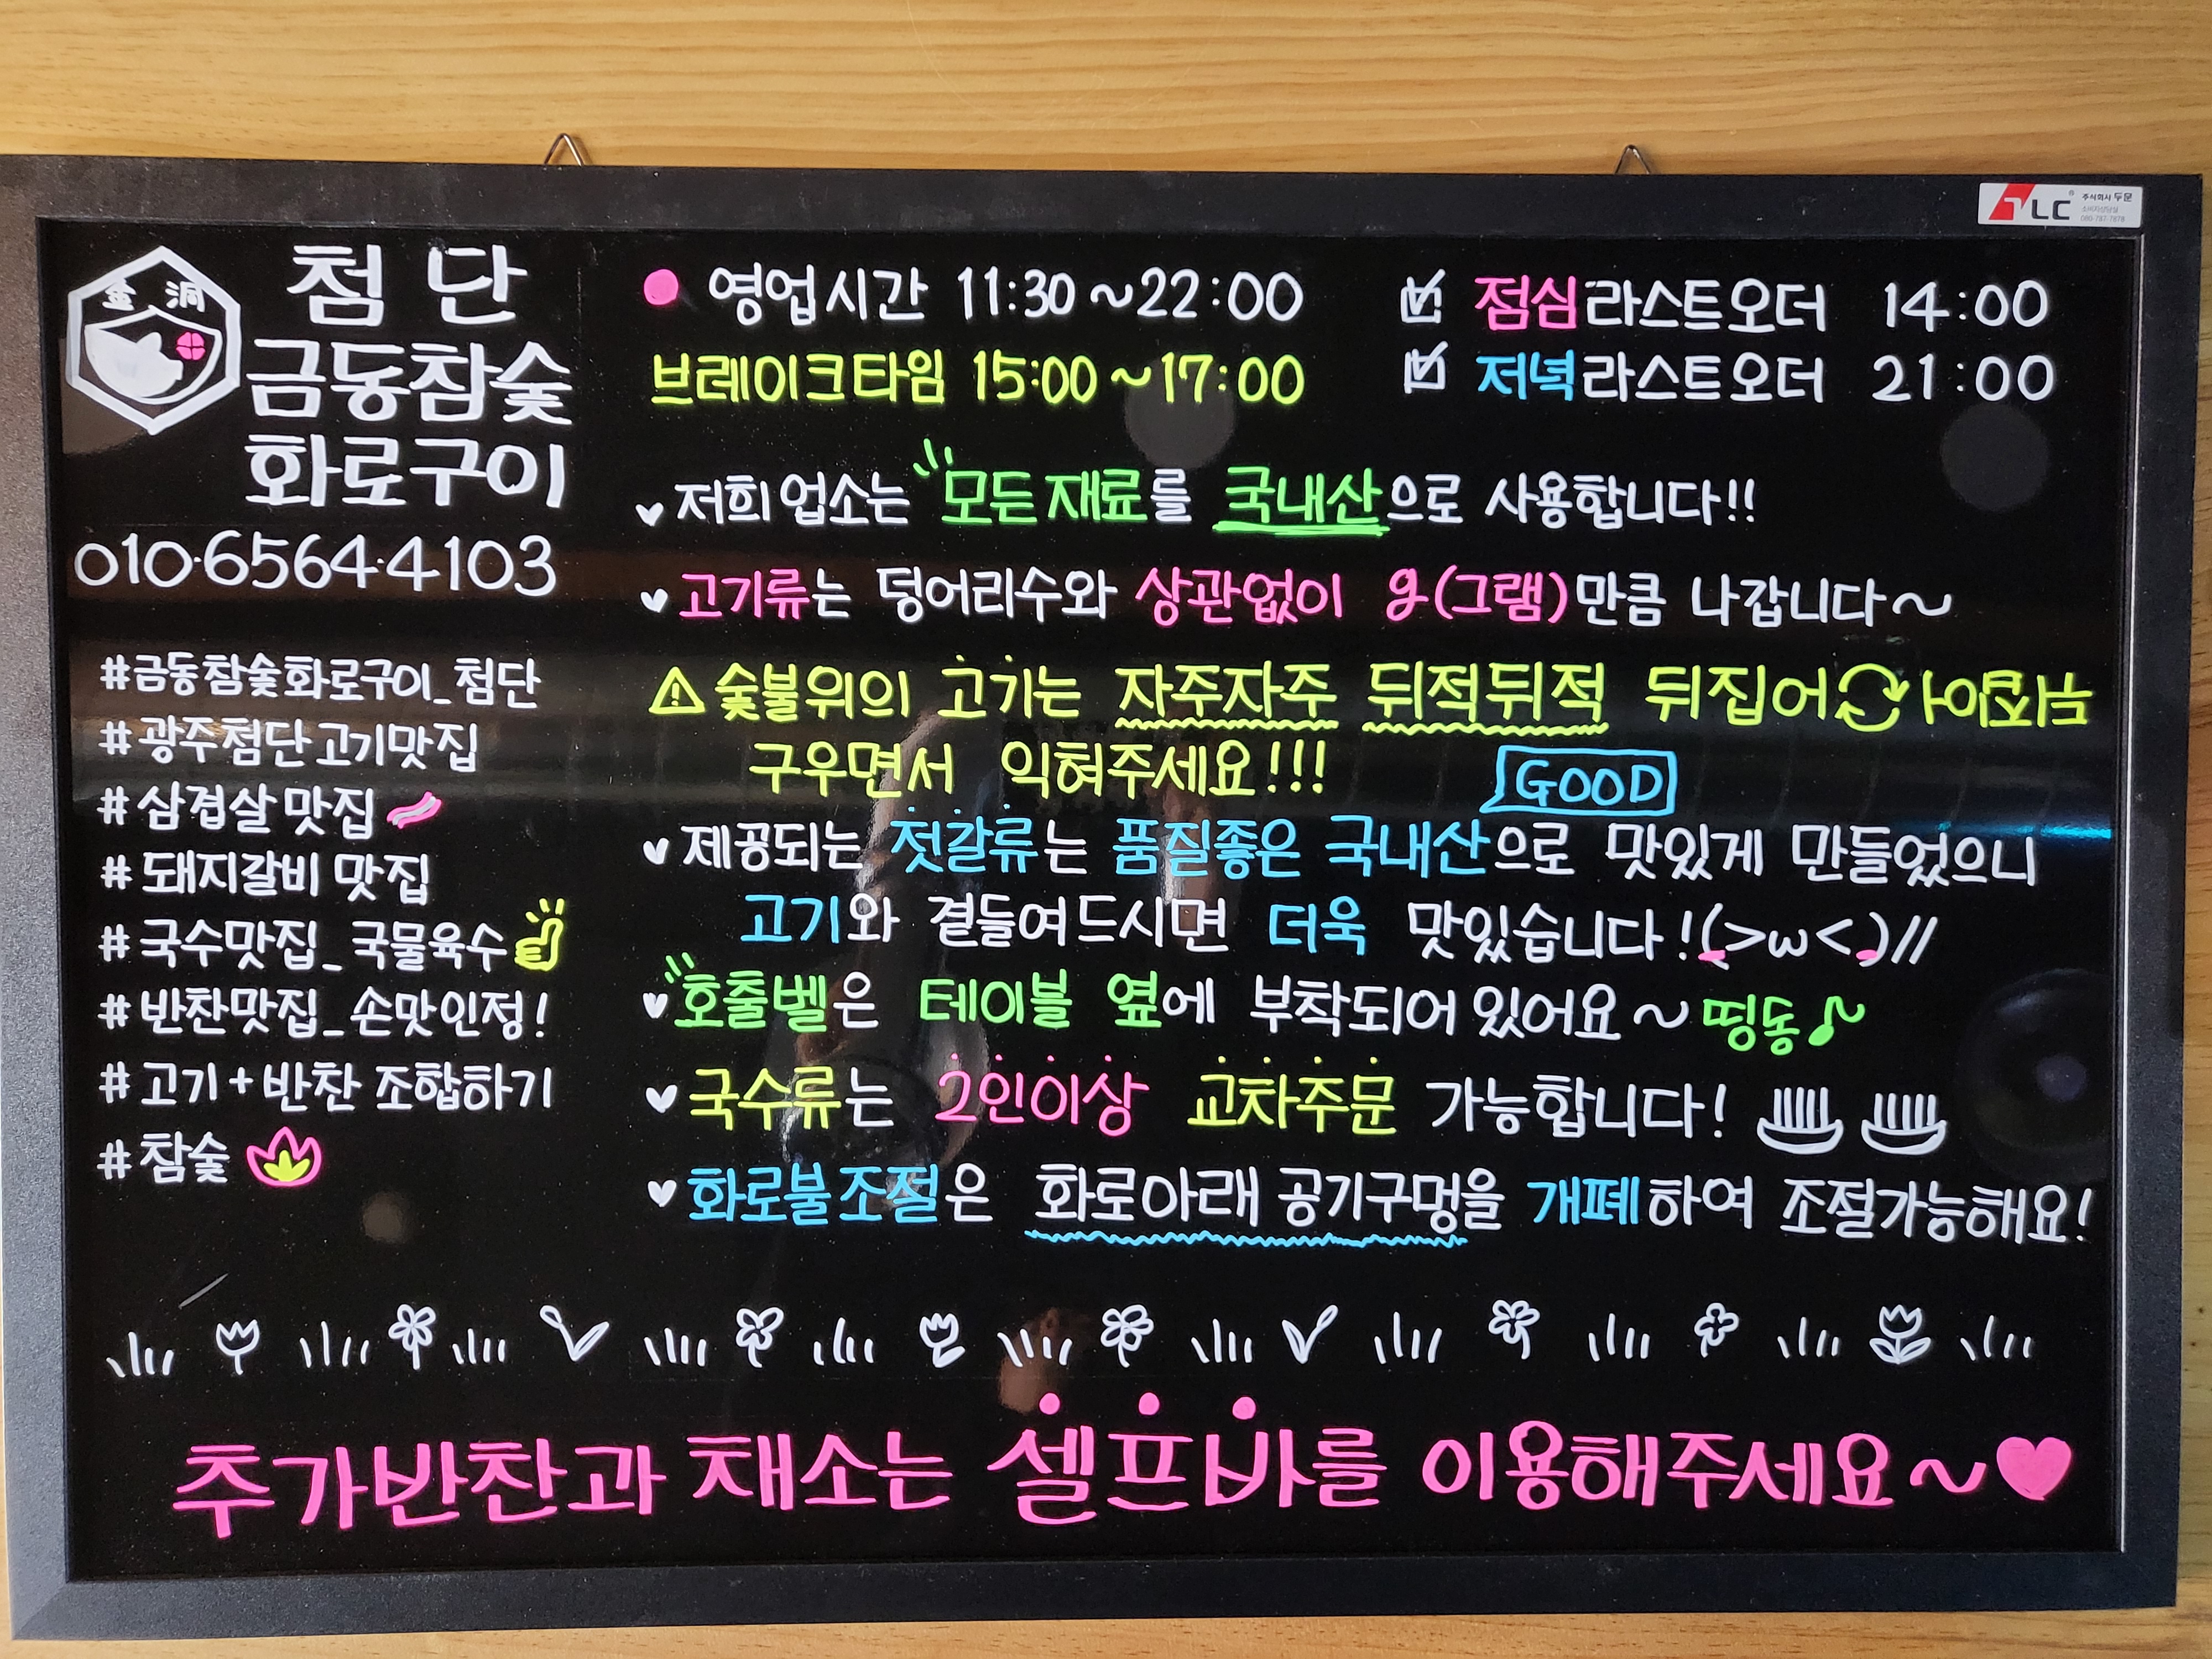 TLC 주식회사 두문
소비자상담실
080-797-7878
金 洞
첨단
금동참숯
화로구이
010-6564-4103
#금동참숯화로구이_첨단
#광주첨단고기맛집
#삼겹살맛집
#돼지갈비 맛집
#국수맛집_국물육수
#반찬맛집_손맛인정!
#고기+반찬 조합하기
#참숯
영업시간 11:30~22:00
브레이크타임 15:00~17:00
점심라스트오더 14:00
저녁라스트오더 21:00
저희업소는 모든재료를 국내산으로 사용합니다!!
고기류는 덩어리수와 상관없이 g(그램)만큼 나갑니다~
숯불위의 고기는 자주자주 뒤적뒤적 뒤집어 뒤집어
구우면서 익혀주세요!!!
GOOD
제공되는 젓갈류는 품질좋은 국내산으로 맛있게 만들었으니
고기와 곁들여드시면 더욱 맛있습니다!(>ω<)//
호출벨은 테이블 옆에 부착되어있어요~띵동♪~
국수류는 2인이상 교차주문 가능합니다!
화로불조절은 화로아래 공기구멍을 개폐하여 조절가능해요!
추가반찬과 채소는 셀프바를 이용해주세요~♥